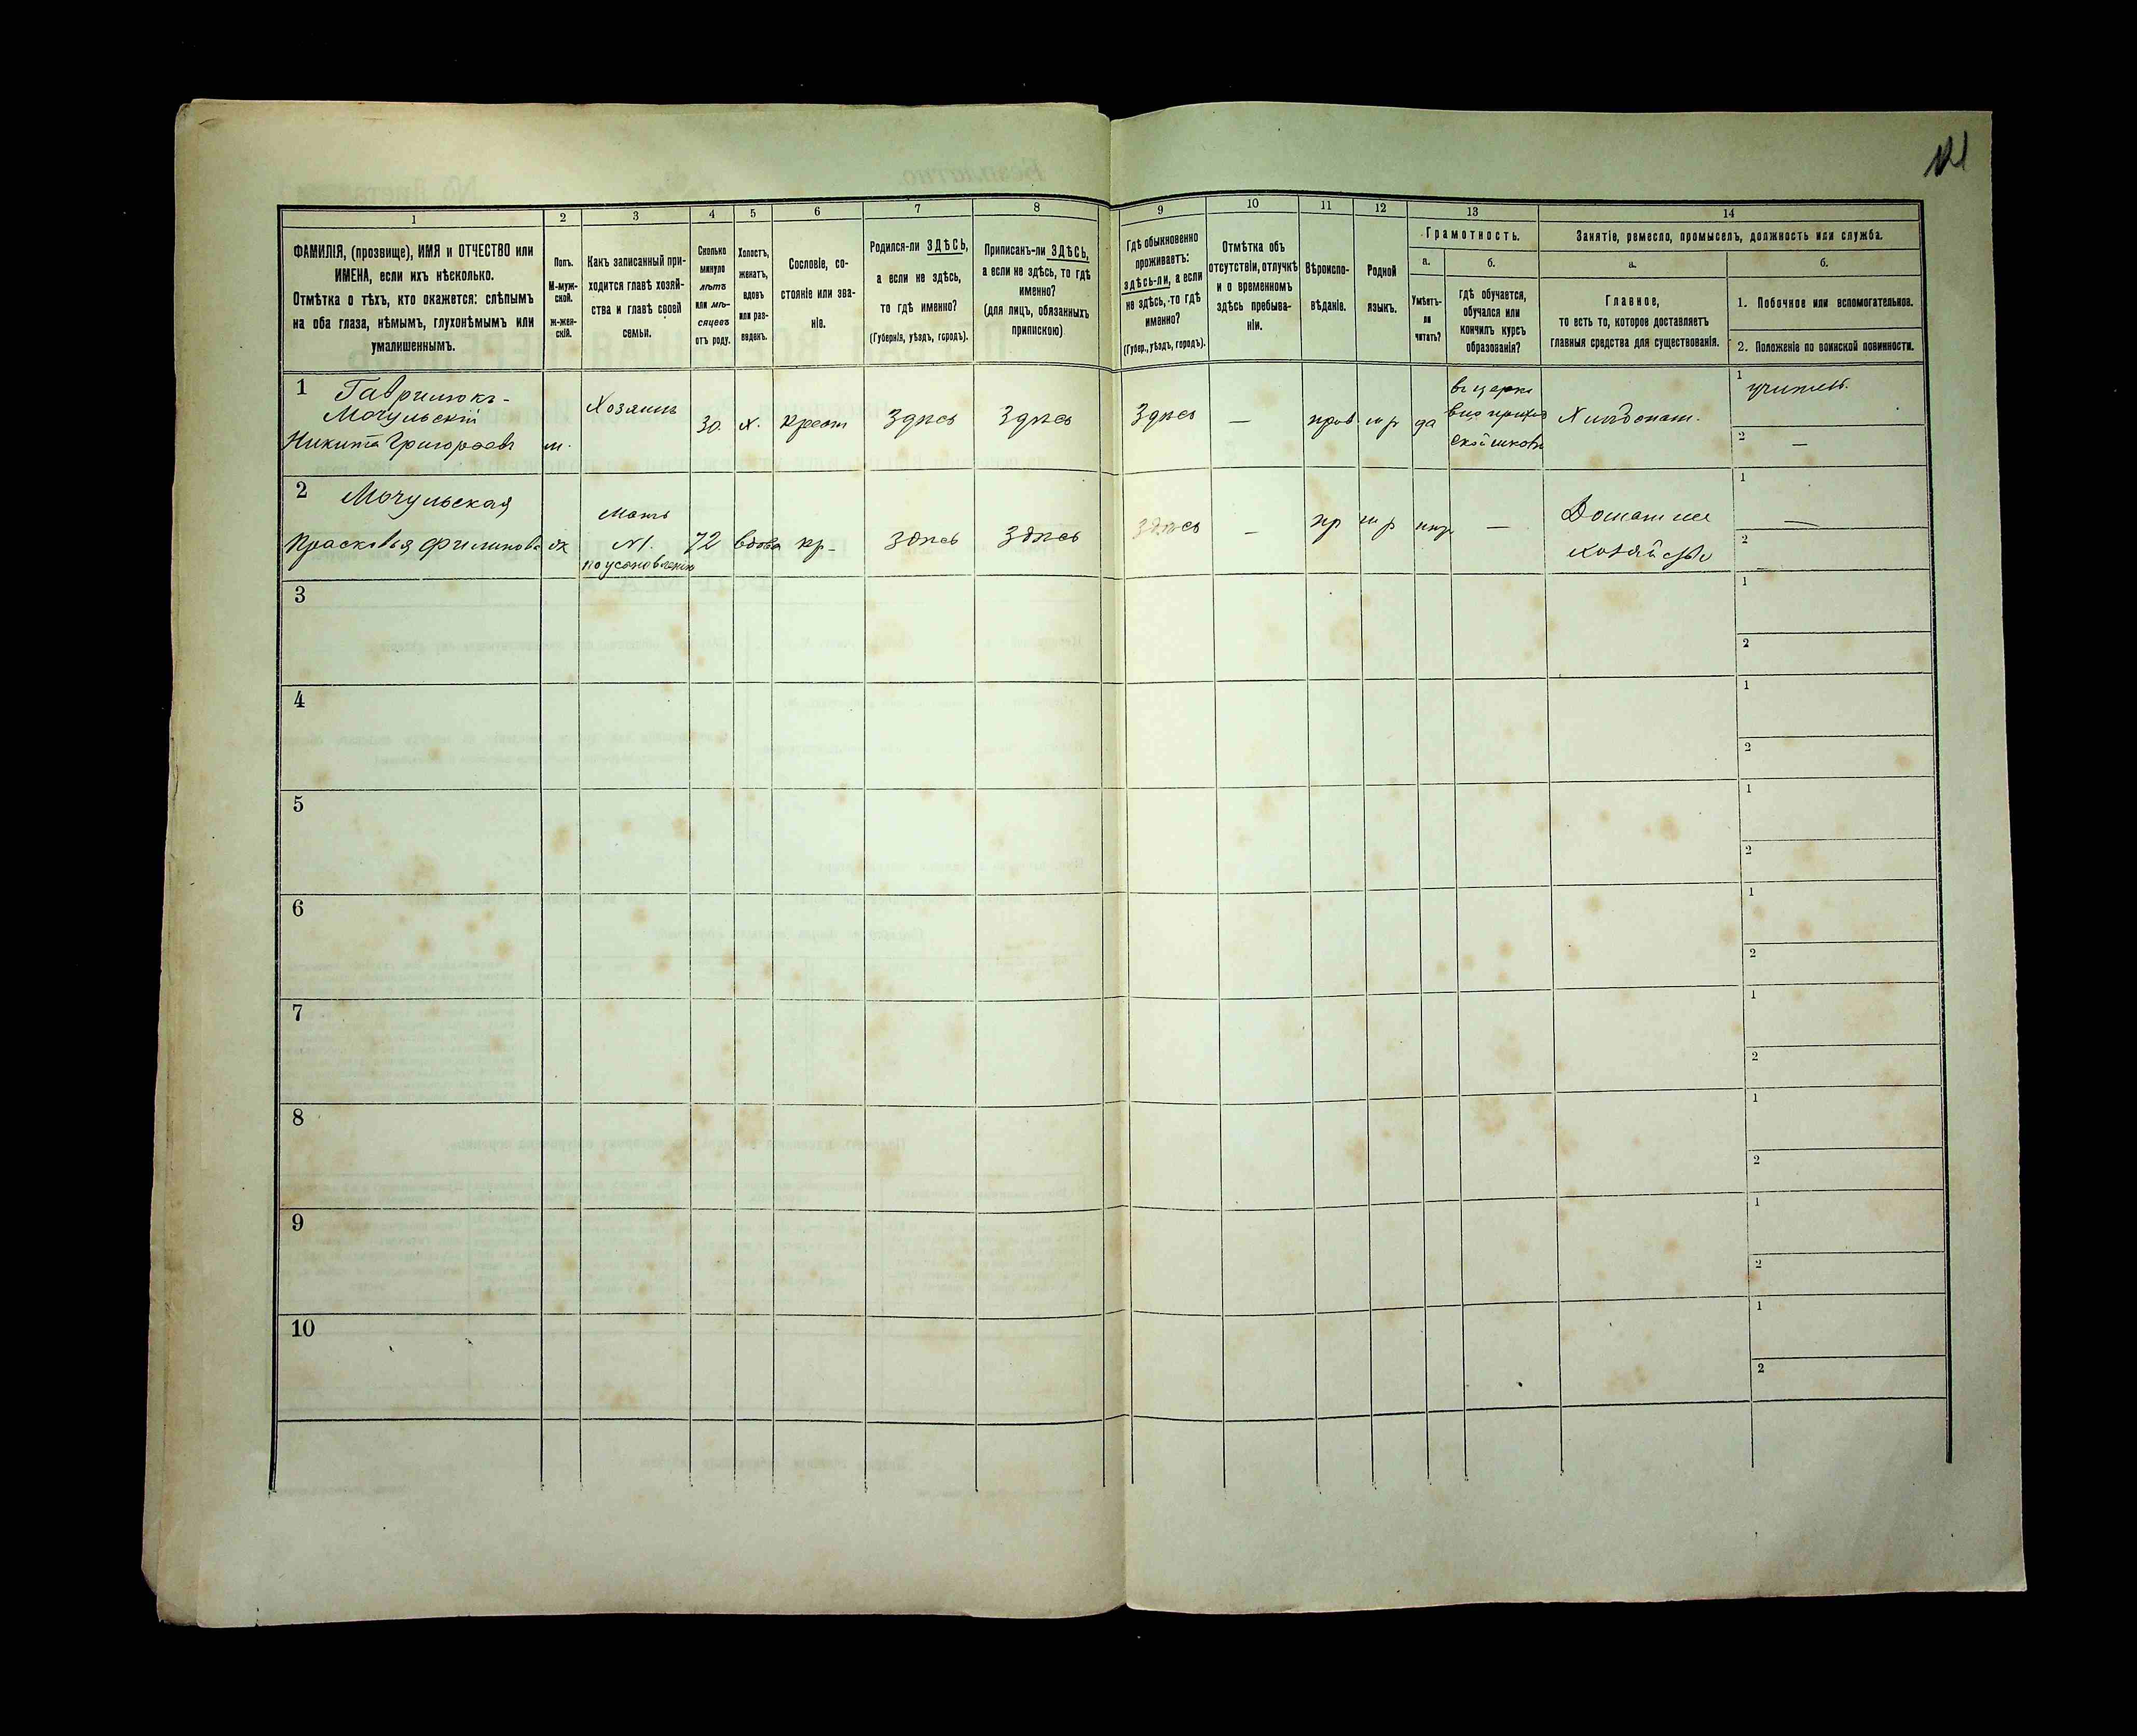 1
2
3
4
5
6
7
8
9
10
11
12
13
14
ФАМИЛІЯ, (прозвище), ИМЯ и ОТЧЕСТВО или
ИМЕНА, если ихъ нѣсколько.
Отмѣтка о тѣхъ, кто окажется: слѣпымъ
на оба глаза, нѣмымъ, глухонѣмымъ или
умалишеннымъ.
Полъ.
М-муж-
ской.
ж-жен-
скій.
Какъ записанный при-
ходится главѣ хозяй-
ства и главѣ своей
семьи.
Сколько
минуло
лѣтъ
или мѣ-
сяцевъ
отъ роду.
Холостъ,
женатъ,
вдовъ
или раз-
веденъ.
Сословіе, со-
стояніе или зва-
ніе.
Родился-ли ЗДѢСЬ,
а если не здѣсь,
то гдѣ именно?
(Губернія, уѣздъ, городъ).
Приписанъ-ли ЗДѢСЬ,
а если не здѣсь, то гдѣ
именно?
(для лицъ, обязанныхъ
припискою)
Гдѣ обыкновенно
проживаетъ:
здѣсь-ли, а если
не здѣсь,-то гдѣ
именно?
(Губер., уѣздъ, городъ).
Отмѣтка объ
отсутствіи, отлучкѣ
и о временномъ
здѣсь пребыва-
ніи.
Вѣроиспо-
вѣданіе.
Родной
языкъ.
Грамотность.
а.
б.
Умѣетъ-
ли
читать?
гдѣ обучается,
обучался или
кончилъ курсъ
образованія?
Занятіе, ремесло, промыселъ, должность или служба.
а.
б.
Главное,
то есть то, которое доставляетъ
главныя средства для существованія.
1. Побочное или вспомогательное.
2. Положеніе по воинской повинности.
1 Гаврилюкъ-
Мочульскій
Никита Григорьевъ
м.
Хозяинъ
30.
х.
крест
Здѣсь
Здѣсь
Здѣсь
—
прав
м р
да
въ церко
вно приход
ской школѣ
Хлѣбопаш.
1 учитель.
2 —
2 Мочульская
Прасковья Филипова
ж
мать
№1.
по усыновленію
72
вдова
кр-
здѣсь
Здѣсь
здѣсь
—
пр
м р
нѣтъ
—
Домашнее
хозяйство
1 —
2 —
3
1
2
4
1
2
5
1
2
6
1
2
7
1
2
8
1
2
9
1
2
10
1
2